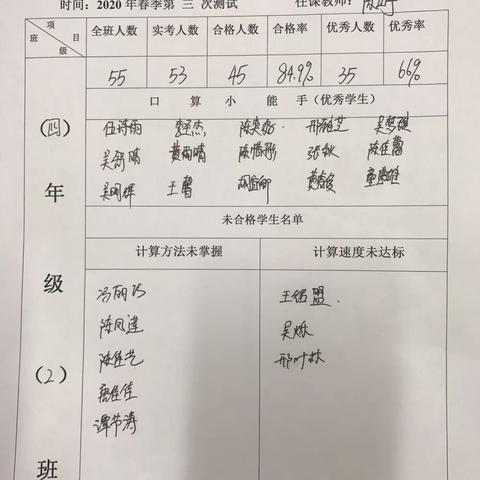 时间：2020年春季第 三 次测试 任课教师：陈
项目
班级
全班人数 实考人数 合格人数 合格率 优秀人数 优秀率
55 53 45 84.9% 35 66%
口算小能手（优秀学生）
伍诗雨 李圣杰 陈奕妘 邢维芝 吴梦琪
吴舒晴 黄雨晴 陈惜彤 张钦 陈佳蕾
吴明辉 王馨
未合格学生名单
计算方法未掌握 计算速度未达标
冯丽巧 王绍盟
陈凤莲 吴烁
陈佳艺 邢叶林
唐佳佳
谭节涛
（四）年级（2）班